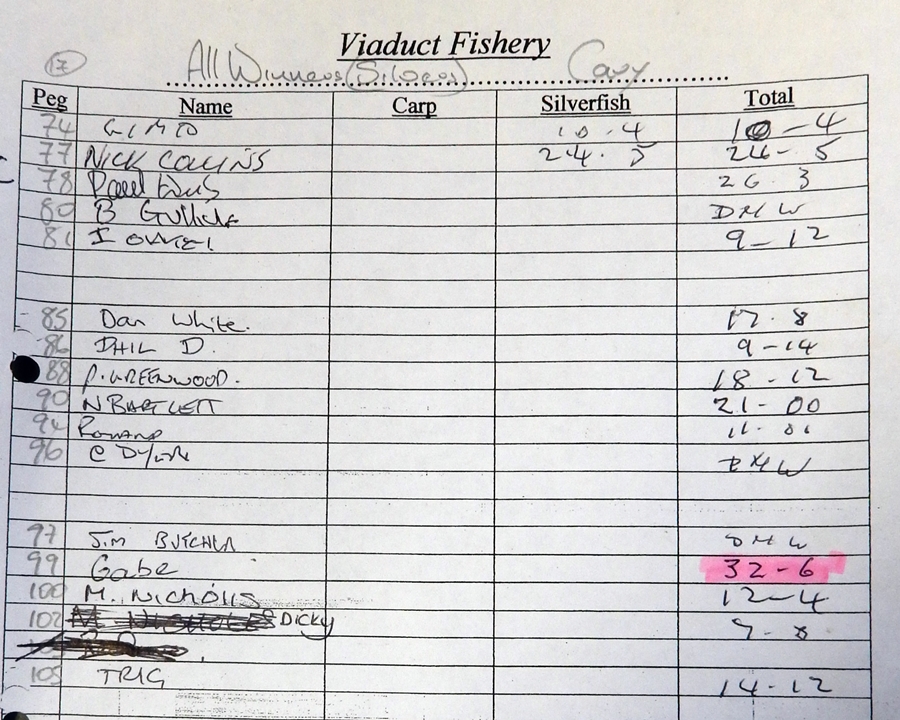 Viaduct Fishery
17 All Winners (Silvers) Cary
Peg Name Carp Silverfish Total
74 GIMO 10.4 10-4
77 NICK COLLINS 24.5 24-5
78 Paul 26.3
80 B DNW
81 9-12
85 Dan White. 17.8
86 PHIL D. 9-14
88 P.GREENWOOD. 18-12
90 N BARTLETT 21-00
94 11-01
96 C DNW
97 Jim BUTCHER DNW
99 Gabe 32-6
100 M. NICHOLLS 12-4
102 DICKY 9-8
105 TRIG 14-12